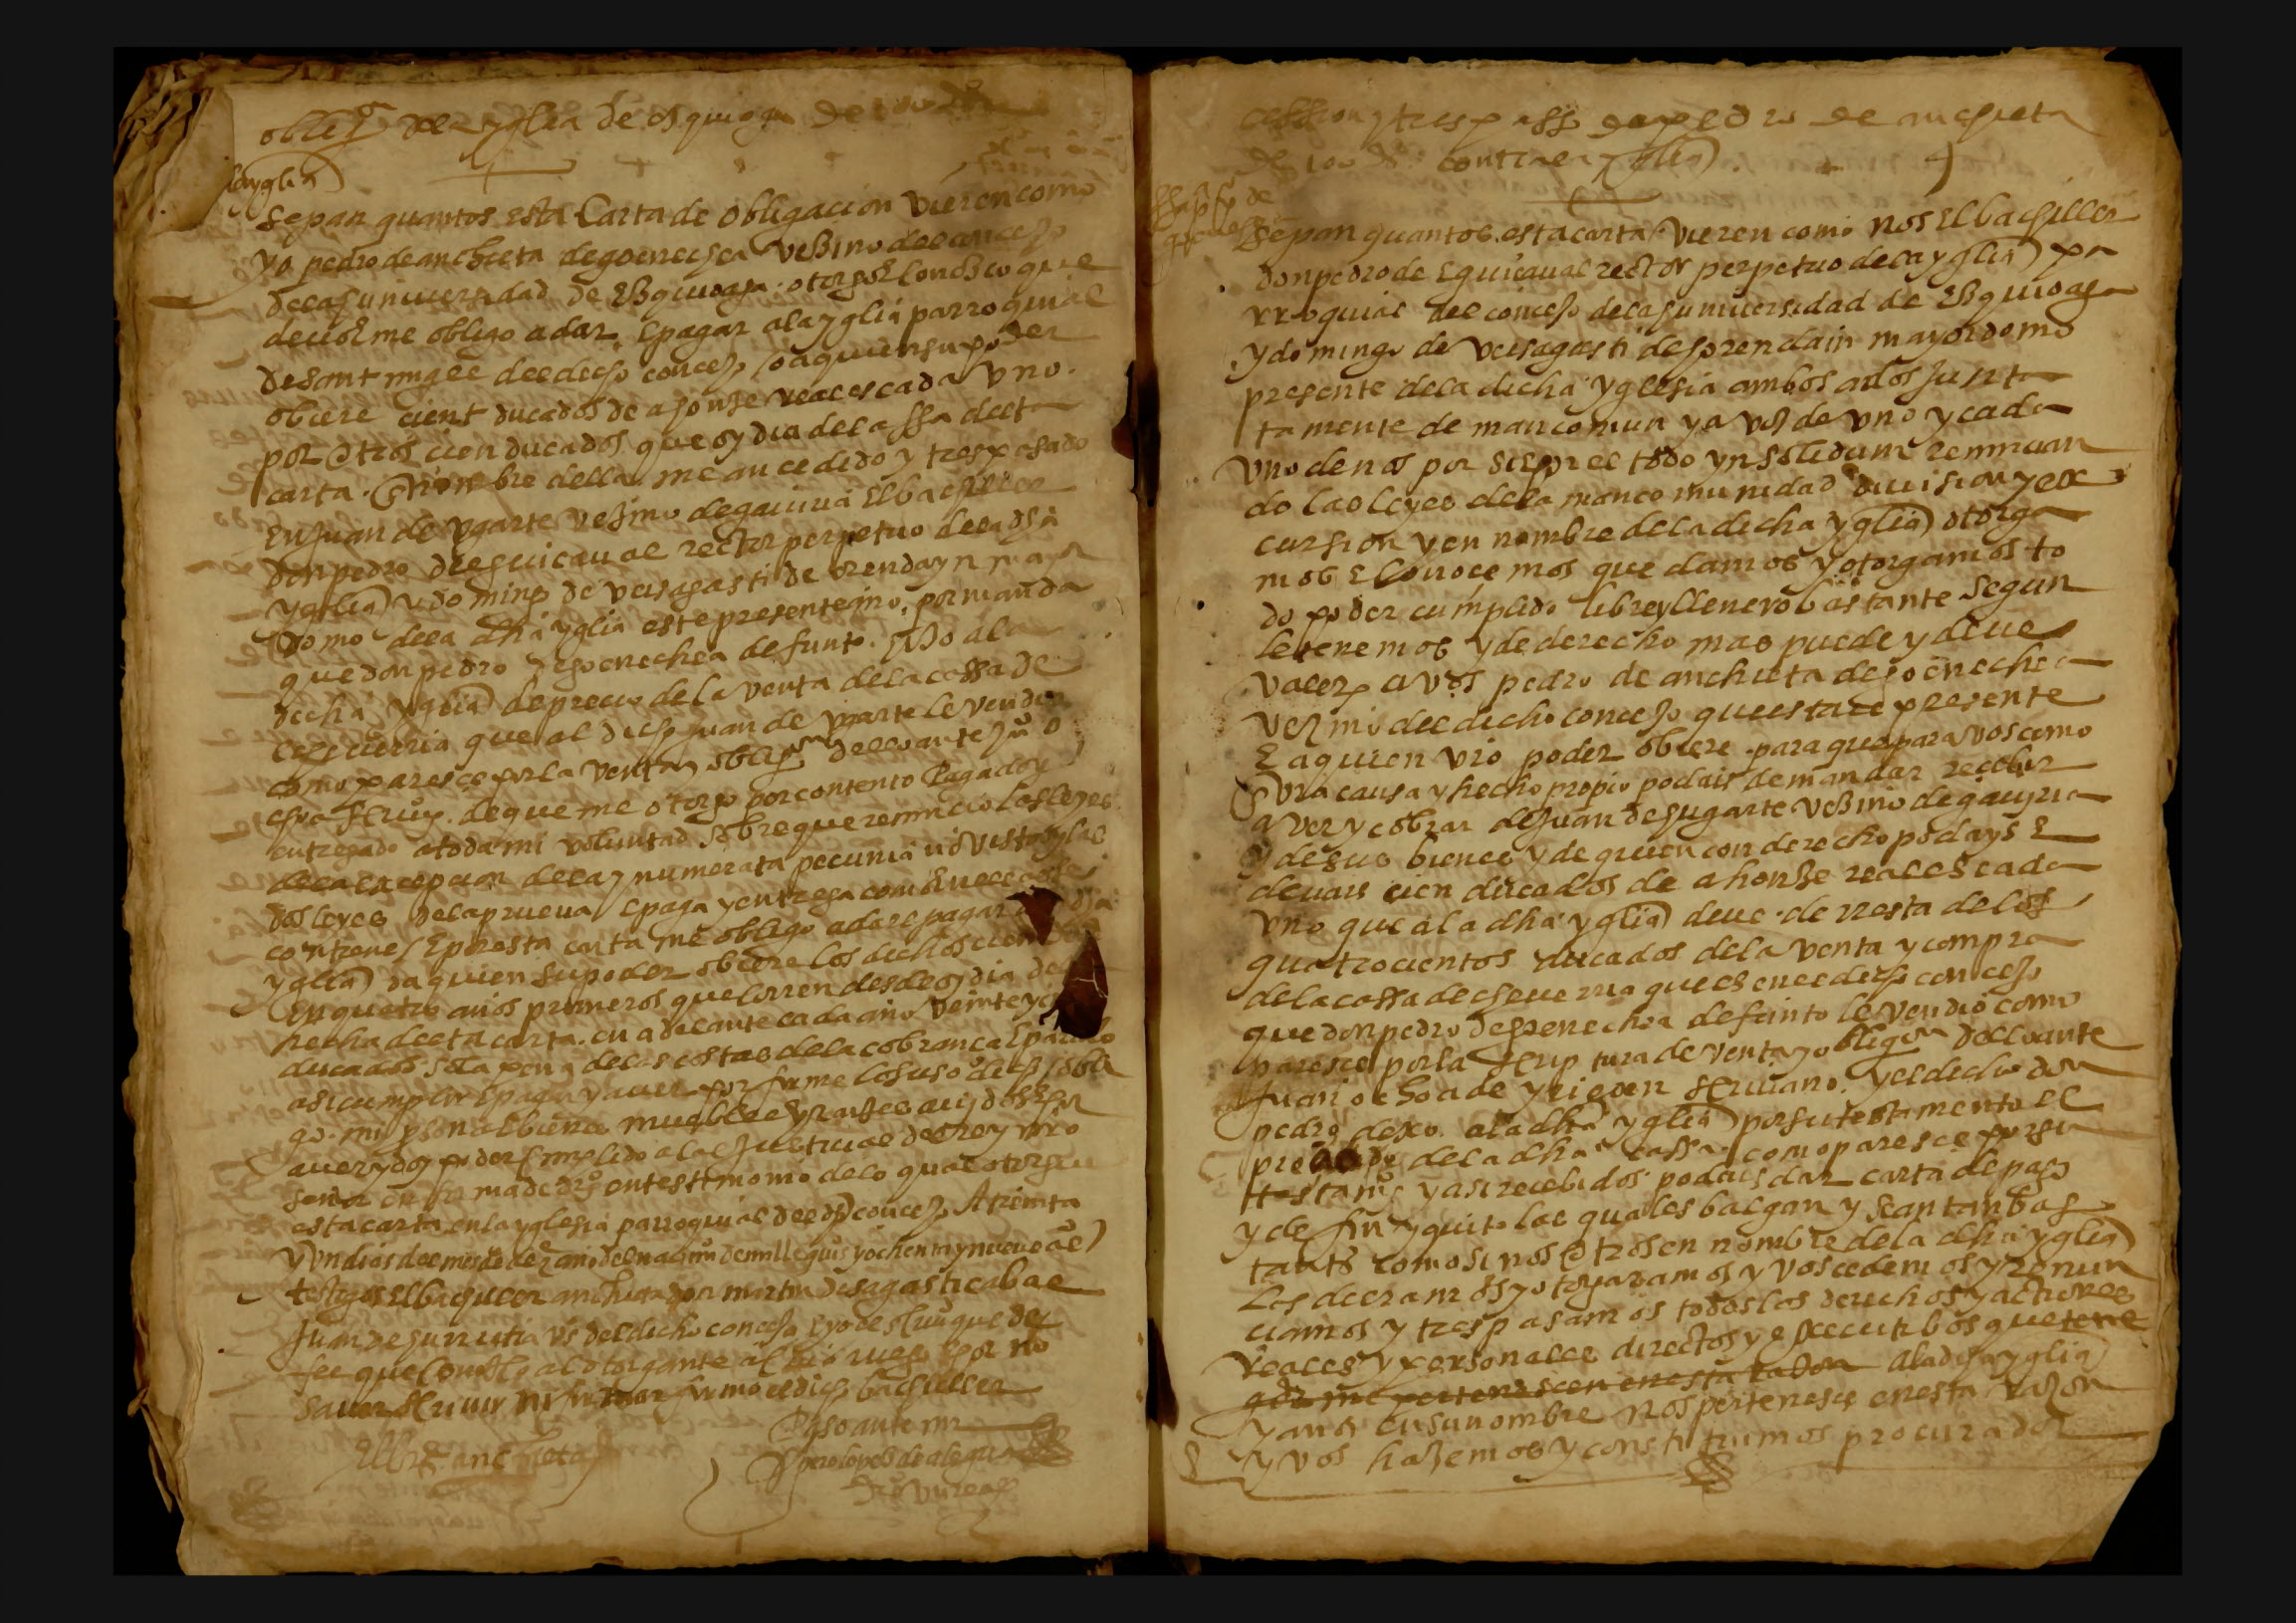 oblig^on de la yglia de esquioga de
la yglia
Sepan quantos esta Carta de obligacion vieren como
yo pedro de anchieta de goenechea vezino del concejo
de la universidad de Ezquioga otorgo e conozco que
devo e me obligo a dar e pagar a la yglia parroquial
de sant migel del dicho concejo o a quien su poder
obiere cient ducados de a honze reales cada uno
por otros cien ducados que oy dia de la ffa desta
carta en nonbre della me an cedido y trespasado
en Juan de ugarte vezino de gaviria el bachiller
don pedro de eguicaval rector perpetuo de la dha
yglia y domingo de veisagasti de orendayn mayor
domo de la dha yglia este presente año, por manda
que don pedro de goenechea defunto hizo a la
dicha yglia de precio de la venta de la cassa de
echeverria que al dicho juan de ugarte le vendio
como paresce por la venta y oblig^on dello ante Ju^o o
scriv^o. de que me otorgo por contento pagado y
entregado a toda mi voluntad sobre que renuncio las leyes
de la excepcion de la ynumerata pecunia no vista y las
dos leyes de la prueva e paga y entrega como en ellas se
contiene e por esta carta me obligo a dar e pagar a la dha
yglia o a quien su poder obiere los dichos cien
en quatro años primeros que corren desde oy dia de la
fecha desta carta en adelante cada año veinte y ci
ducados so la pena de las costas de la cobrança e para lo
asi cumplir e pagar y aver por firme lo suso dicho obli
go mi persona e bienes muebles e rayzes avidos e por
aver y doy poder cumplido a las Justicias del rey nro
señor en forma de dr^o en testimonio de lo qual otorgue
esta carta en la yglesia parroquial del dho concejo A treinta
y un dias del mes de dez^e año del nascim^o de mill e qui^os y ochenta y nueve años
testigos el bachiller anchieta don martin de sagasticabal
Juan de gurrutia vs del dicho concejo e yo el scriv^o que doy
fee que conozco al otorgante a su ruego e por no
saver scrivir ni firmar firmo el dicho bachiller
El br anchieta
Paso ante mi
pero lopes de alegria
cession y trespasso de pedro de anchieta
de 100 ds contra la yglia
Sepan quantos esta carta vieren como nos El bachiller
don pedro de Eguicaval rector perpetuo de la yglia pa
rroquial del concejo de la universidad de Ezquioga
y domingo de veisagasti de horendain mayordomo
presente de la dicha yglesia ambos a dos Junta
tamente de mancomun y a voz de uno y cada
uno de nos por si e por el todo yn solidum renuncian
do las leyes de la mancomunidad division y ex
cursion y en nombre de la dicha yglia otorga
mos e conocemos que damos y otorgamos to
do poder cumplido libre y llenero bastante segun
le tenemos y de derecho mas puede y deve
valer a vos pedro de anchieta de goenechea
vezino del dicho concejo que esta presente
E a quien vro poder obiere para que para vos como
en vra causa y hecho propio podais demandar recebir
aver y cobrar de Juan de ugarte vezino de gaviria
y de sus bienes y de quien con derecho podays e
devais cien ducados de a honze reales cada
uno que a la dha yglia deve de resta de los
quatrocientos ducados de la venta y compra
de la cassa de echeverria que es en el dicho concejo
que don pedro de goenechea defunto le vendio como
paresce por la scriptura de venta y oblig^on dello ante
Juan ochoa de yrigoen scrivano. y el dicho don
pedro dexo a la dha yglia por su testamento el
precio de la dha cassa como paresce por su
testam^o y asi recebidos podais dar carta de pago
y de fin y quito las quales balgan y sean tan bas
tantes como si nos otros en nombre de la dha yglia
las dieramos y otorgaramos y vos cedemos y renun
ciamos y trespasamos todos los derechos y actiones
reales y personales directos y executibos que tene
que me pertenescen en esta razon a la dicha yglia
y a nos en su nombre nos pertenesce en esta razon
y vos hazemos y constituimos procurador